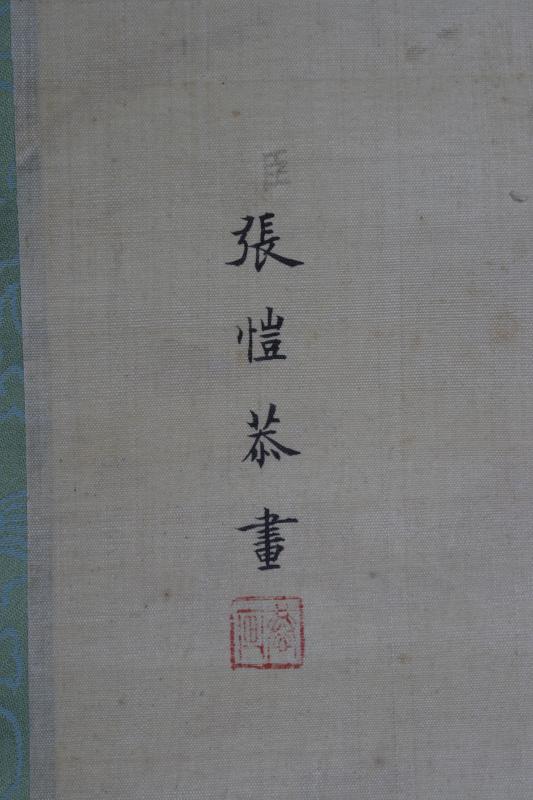 臣張愷恭畫